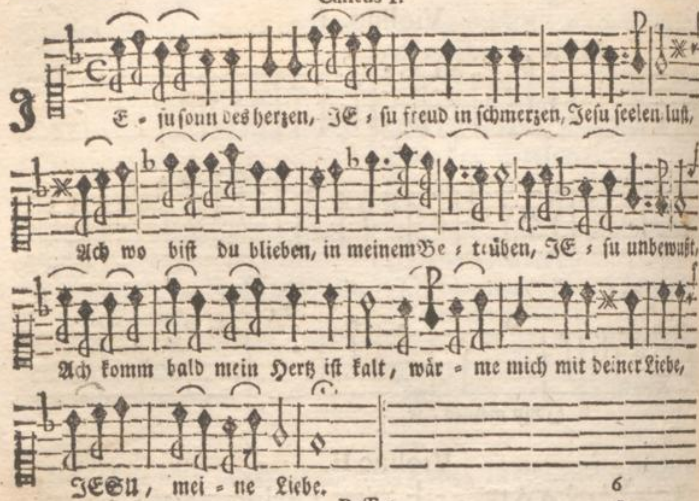 JE - su soun des herzen, JE - su freud in schmerzen, Jesu seelen lust,
Ach wo bist du blieben, in meinem Be - trüben, JE - su unbewußt,
Ach komm bald mein Hertz ist kalt, wär - me mich mit deiner Liebe,
JESU, mei - ne Liebe.
6